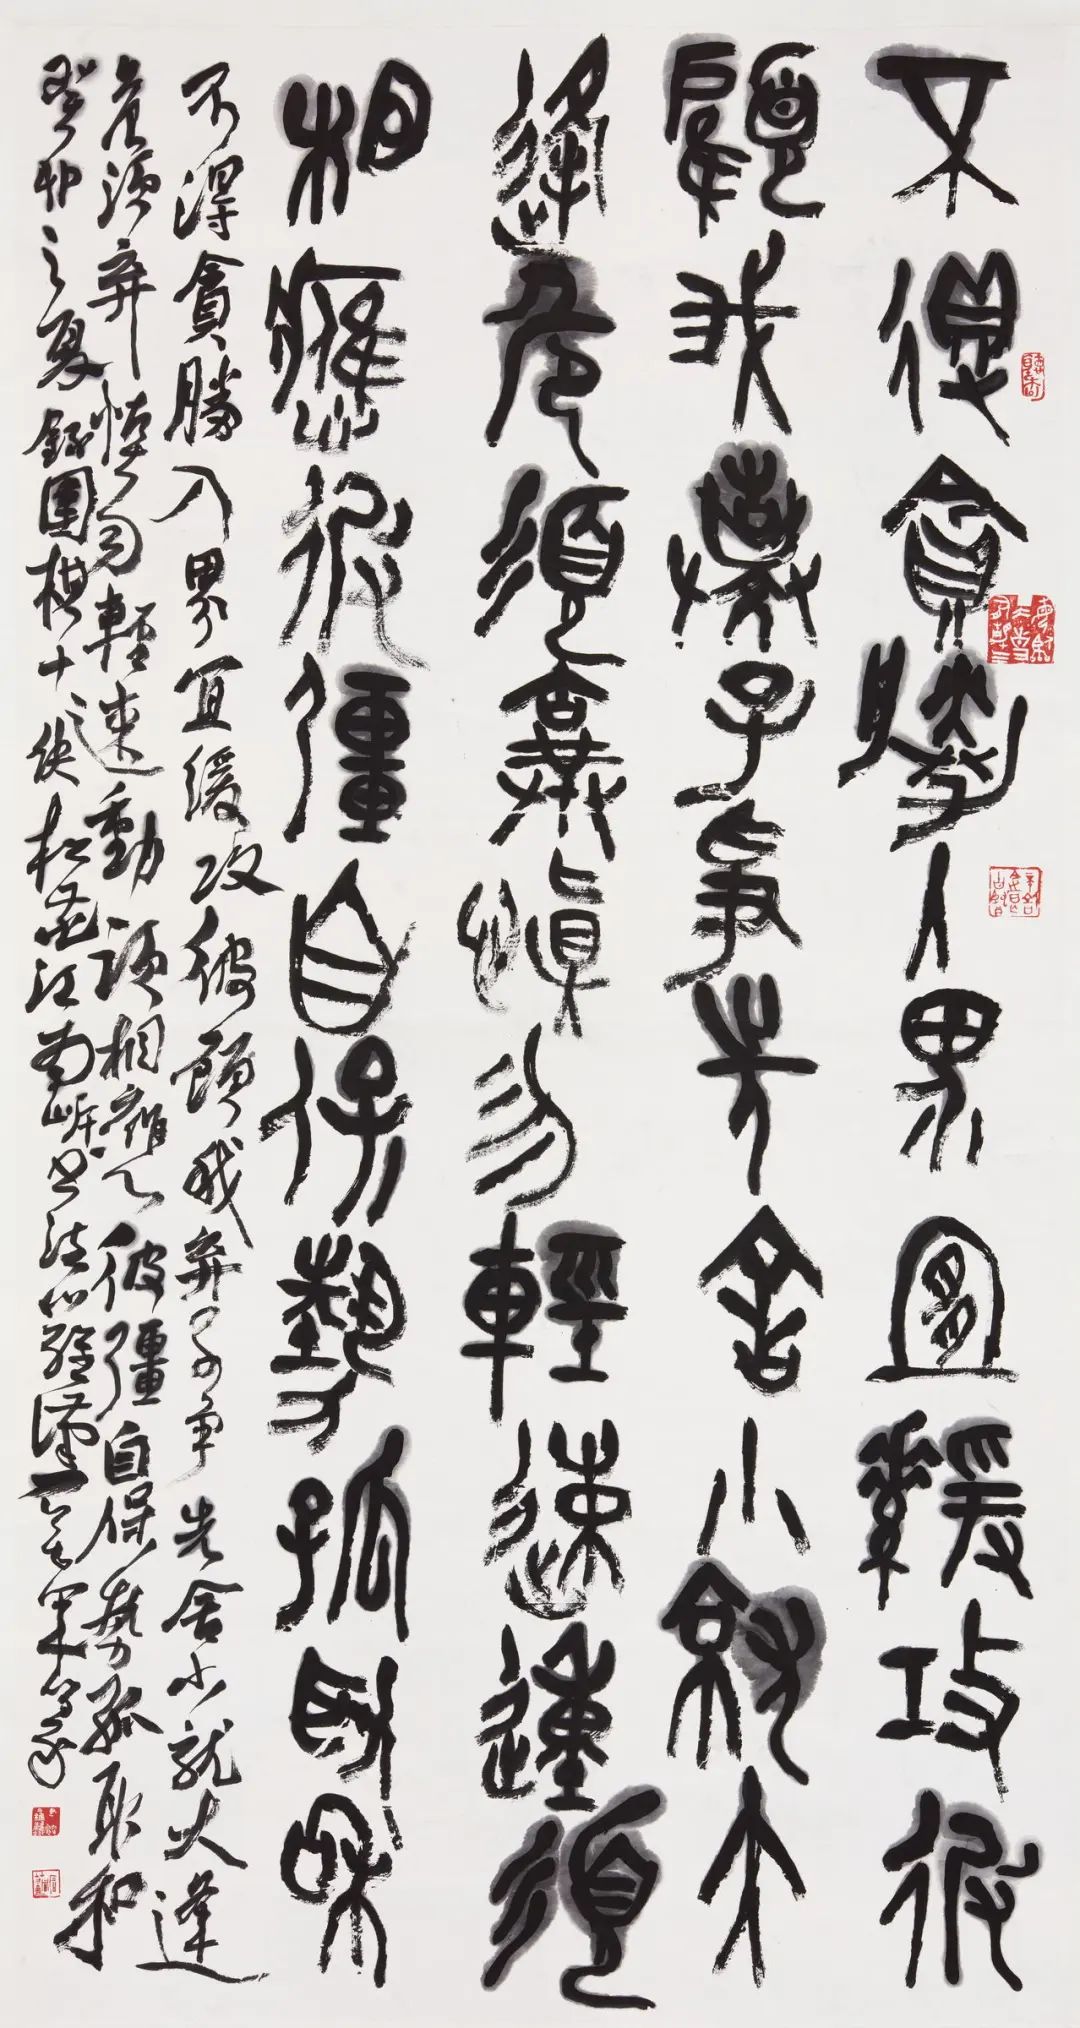 不得貪勝入界宜緩攻彼
顧我棄子爭先舍小就大
逢危須棄慎勿輕速動須
相應彼彊自保勢孤取和
不得貪勝入界宜緩攻彼顧我弃子争先舍小就大逢
危須弃慎勿輕速動須相應彼彊自保勢孤取和
癸卯之夏錄圍棋十訣松花江南岸書法